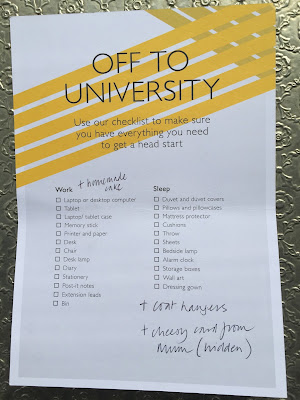 OFF TO
UNIVERSITY
Use our checklist to make sure
you have everything you need
to get a head start
+ homemade
cake
Work
Laptop or desktop computer
Tablet
Laptop/ tablet case
Memory stick
Printer and paper
Desk
Chair
Desk lamp
Diary
Stationery
Post-it notes
Extension leads
Bin
Sleep
Duvet and duvet covers
Pillows and pillowcases
Mattress protector
Cushions
Throw
Sheets
Bedside lamp
Alarm clock
Storage boxes
Wall art
Dressing gown
+ coat hangers
+ cheesy card from
Mum (hidden)